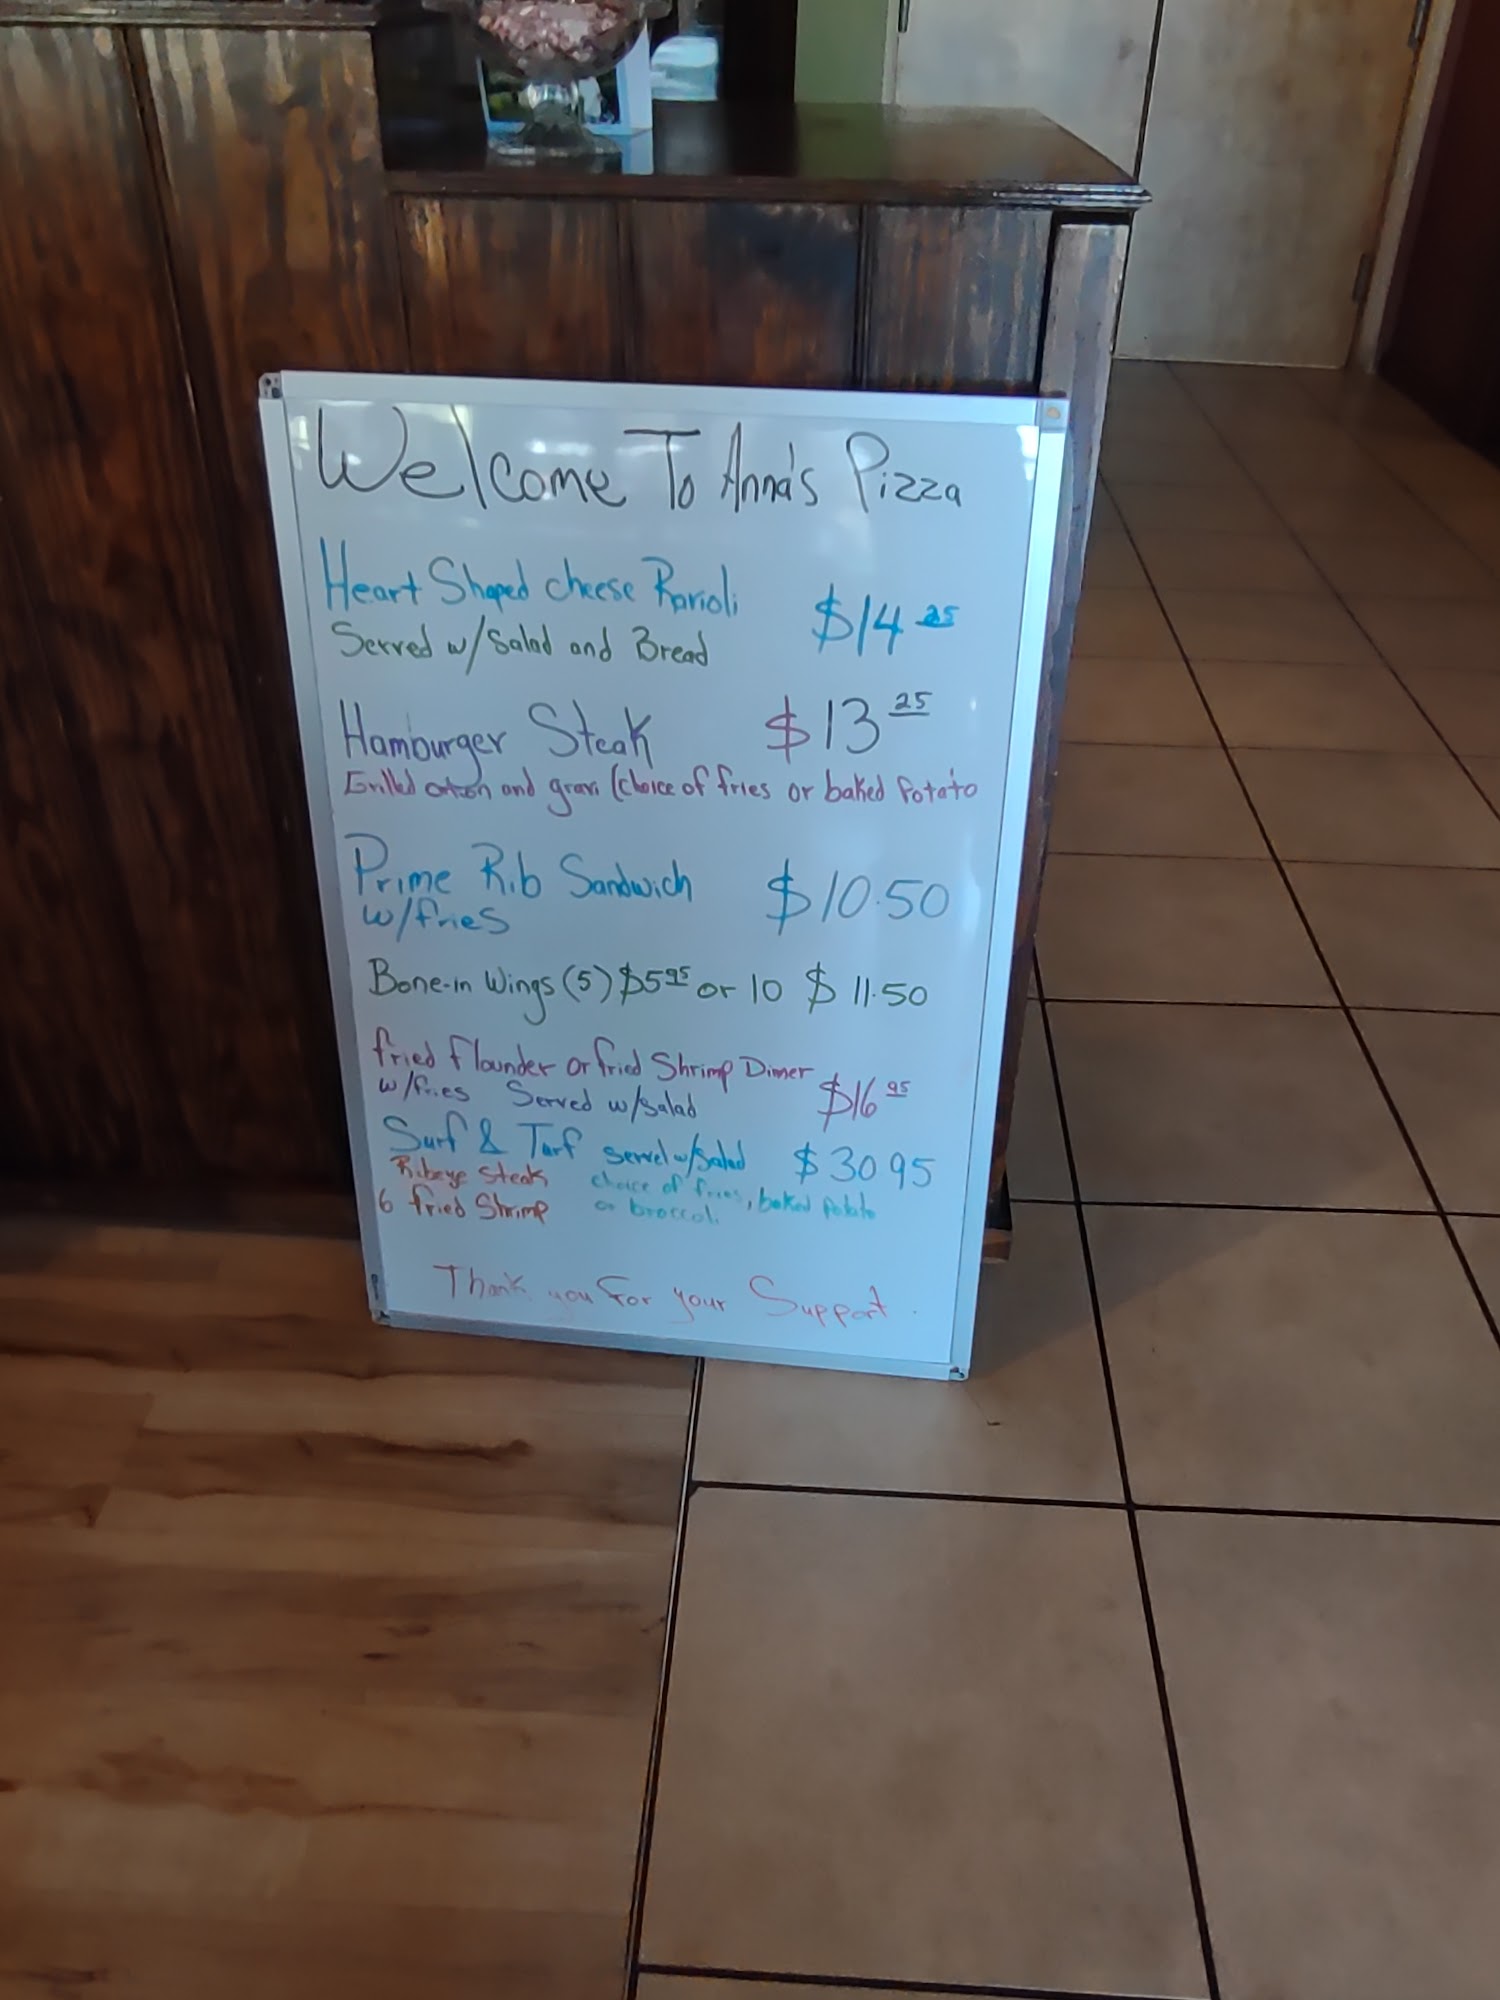 Welcome To Anna's Pizza
Heart Shaped cheese Ravioli $14 25
Served w/Salad and Bread
Hamburger Steak $13 25
Grilled onion and gravi (choice of fries or baked Potato
Prime Rib Sandwich $10.50
w/fries
Bone-in Wings (5) $5 95 or 10 $ 11.50
fried flounder or fried Shrimp Dinner $16 95
w/fries Served w/salad
Surf & Turf served w/salad $30 95
Ribeye Steak choice of fries, baked potato
6 fried Shrimp or broccoli
Thank you For your Support.